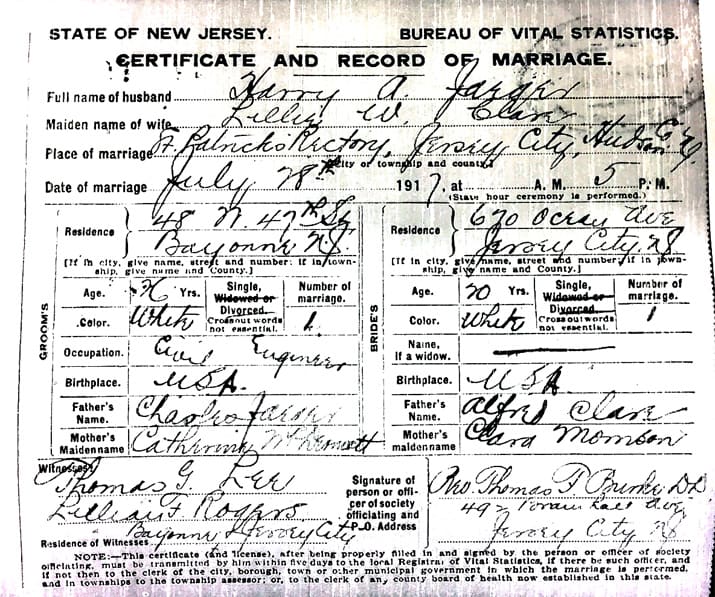 STATE OF NEW JERSEY. BUREAU OF VITAL STATISTICS.
CERTIFICATE AND RECORD OF MARRIAGE.
Full name of husband Harry A. Jaeger
Maiden name of wife Lillie W. Clark
Place of marriage St. Patricks Rectory, Jersey City, Hudson Co NJ
(City or township and county.)
Date of marriage July 28th 1917, at A. M. 5 P. M.
(State hour ceremony is performed.)
GROOM'S
Residence 48 W. 47th St
Bayonne N.J.
[If in city, give name, street and number: if in township, give name and County.]
Age. 26 Yrs. Single, Widowed or Divorced. Number of marriage.
Color. White Cross out words not essential. 1
Occupation. Civil Engineer
Birthplace. USA.
Father's Name. Charles Jaeger
Mother's Maiden name Catherine
BRIDE'S
Residence 670 Ocean Ave
Jersey City. NJ
[If in city, give name, street and number; if in township, give name and County.]
Age. 20 Yrs. Single, Widowed or Divorced. Number of marriage.
Color. White Cross out words not essential. 1
Name, If a widow.
Birthplace. USA
Father's Name. Alfred Clark
Mother's maiden name Clara
Witnesses Thomas G. Lee
Lillian F. Rogers
Residence of Witnesses Bayonne & Jersey City
Signature of person or officer of society officiating and P.O. Address
Rev. Thomas F Burke DD
492 Ave
Jersey City NJ
NOTE:—This certificate (and license), after being properly filled in and signed by the person or officer of society
officiating, must be transmitted by him within five days to the local Registrar of Vital Statistics, if there be such officer, and
if not then to the clerk of the city, borough, town or other municipal government in which the marriage is performed,
and in townships to the township assessor; or, to the clerk of any county board of health now established in this state.